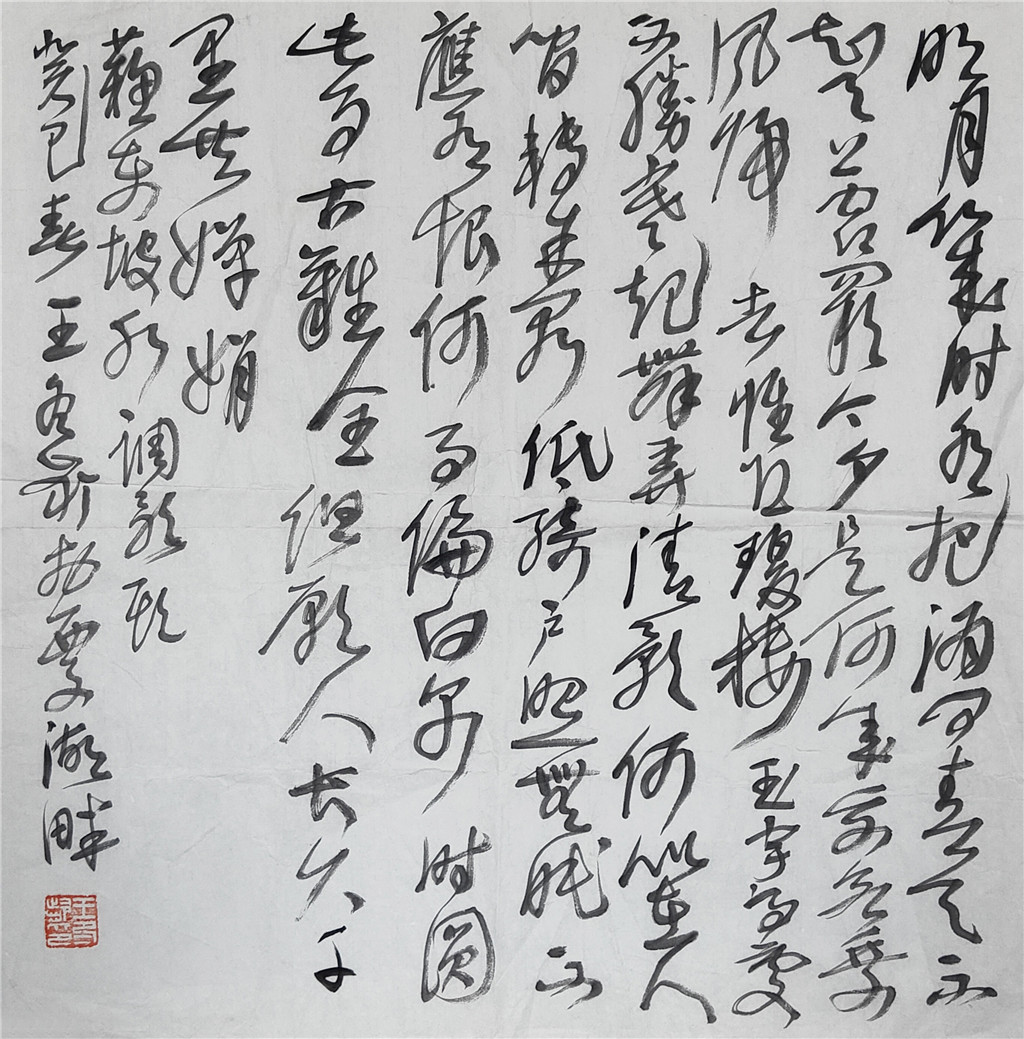 明月几时有把酒问青天不
知天上宫阙今夕是何年我欲乘
风归去惟恐琼楼玉宇高处
不勝寒起舞弄清影何似在人
间转朱阁低绮户照無眠不
應有恨何事偏向别时圆
此事古難全但愿人长久千
里共婵娟
蘇东坡水调歌头
癸巳春王於湖畔